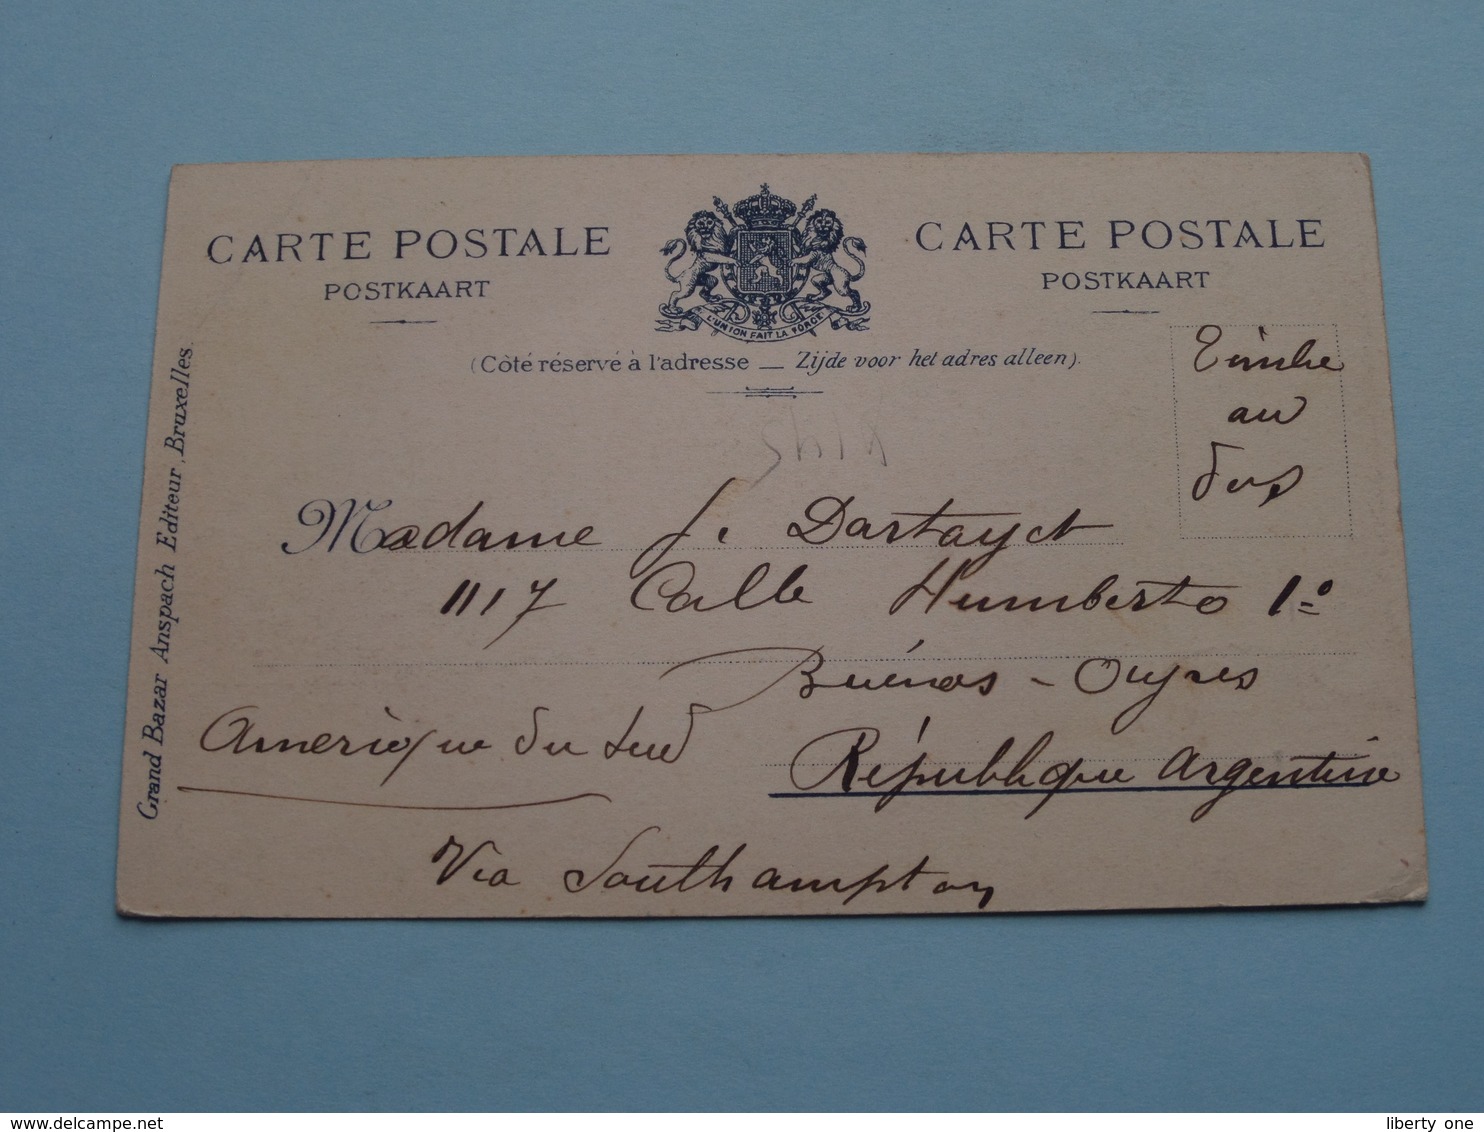 CARTE POSTALE
POSTKAART
L'UNION FAIT LA FORCE
CARTE POSTALE
POSTKAART
(Côté réservé à l'adresse — Zijde voor het adres alleen).
Timbre
au
dos
Grand Bazar Anspach Editeur, Bruxelles.
Madame J. Dartayet
1117 Calle Humberto 1º
Buénos-Ayres
Amérique du Sud
République Argentine
Via Southampton
delcampe.net
liberty one